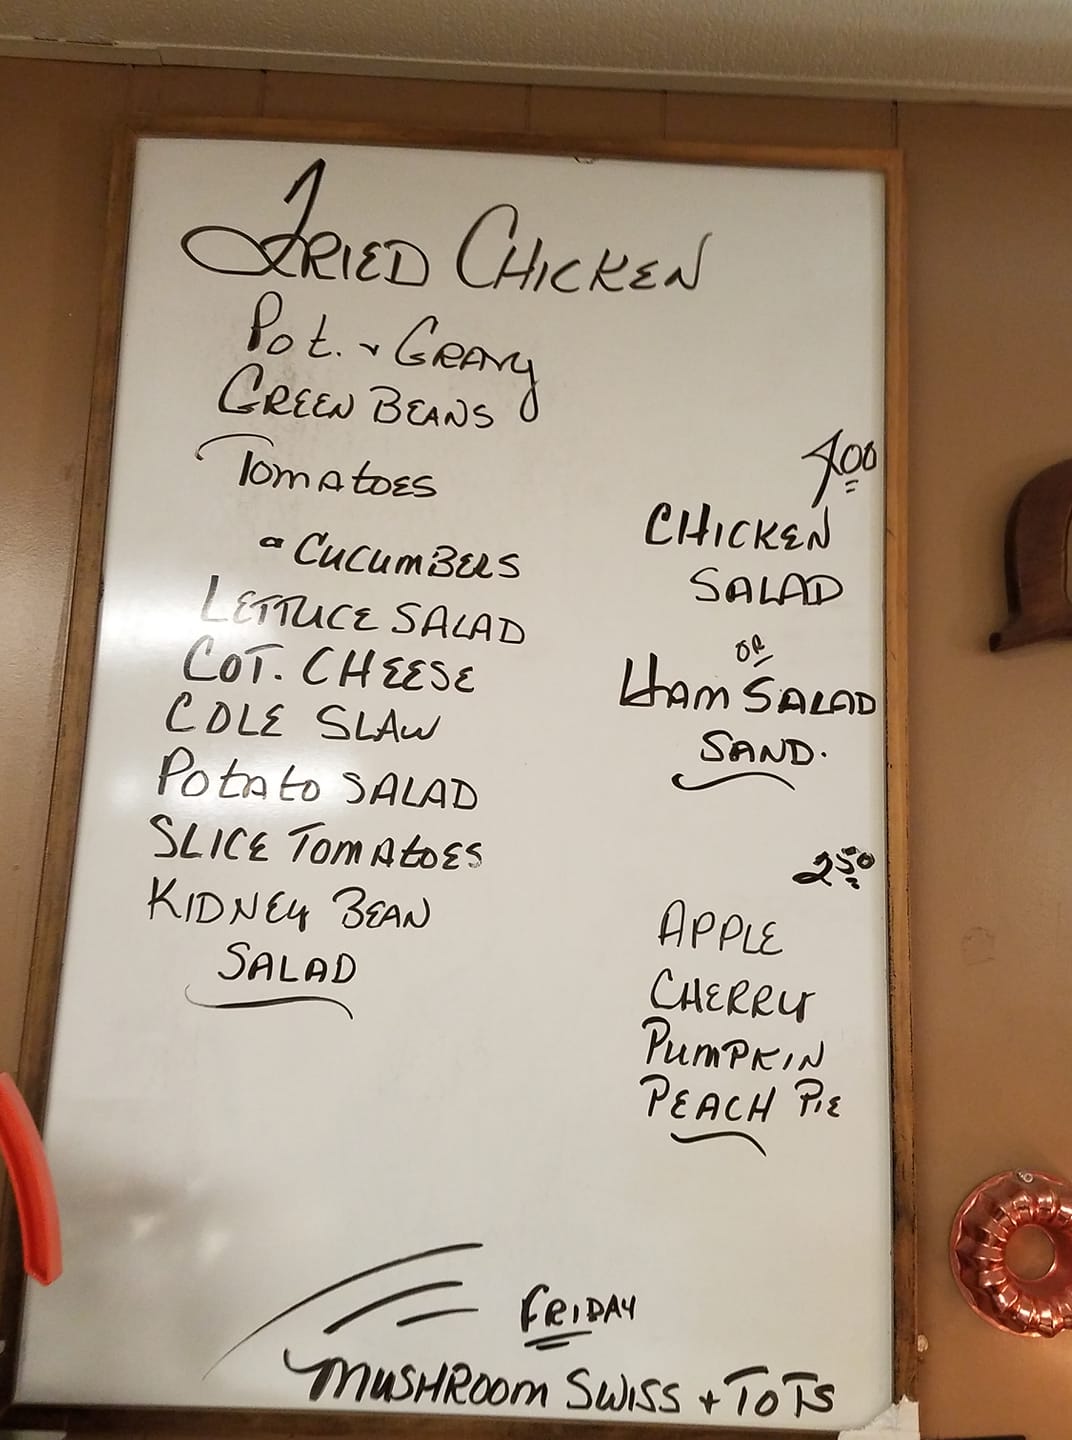 FRIED CHICKEN
Pot. & GRAVY
GREEN BEANS
TOMATOES
& CUCUMBERS
LETTUCE SALAD
COT. CHEESE
COLE SLAW
POTATO SALAD
SLICE TOMATOES
KIDNEY BEAN
SALAD
CHICKEN
SALAD
OR
HAM SALAD
SAND.
2.50
APPLE
CHERRY
PUMPKIN
PEACH PIE
FRIDAY
MUSHROOM SWISS + TOTS